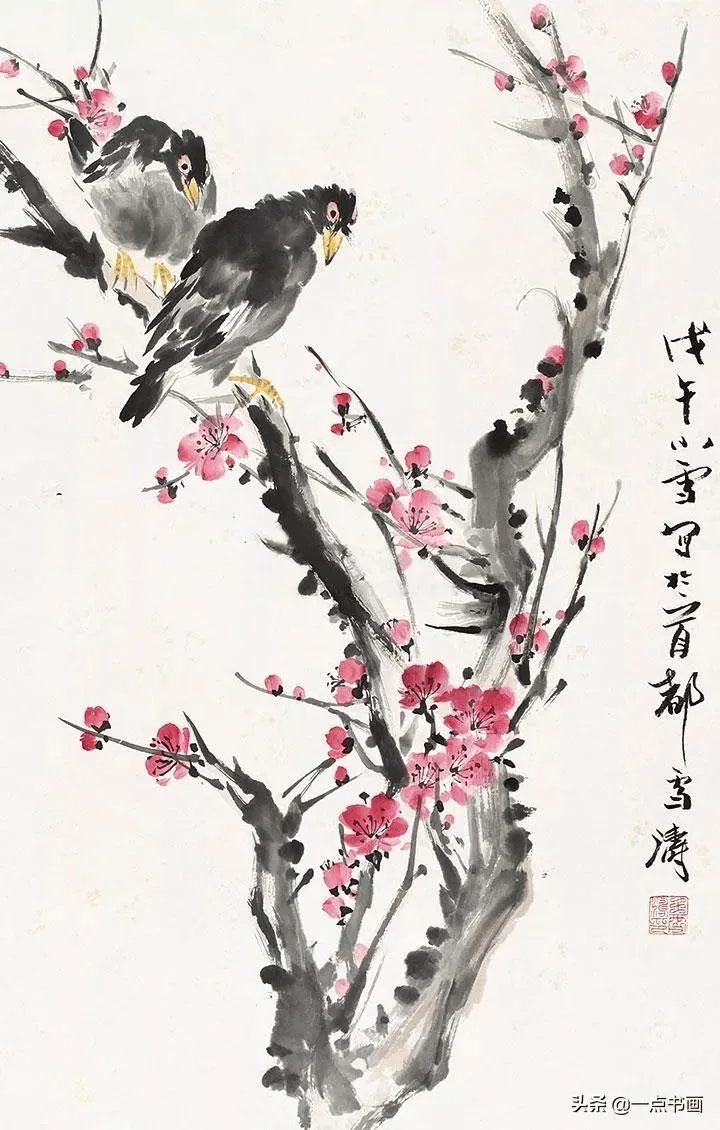 戊午小雪写于首都雪涛
头条 @一点书画